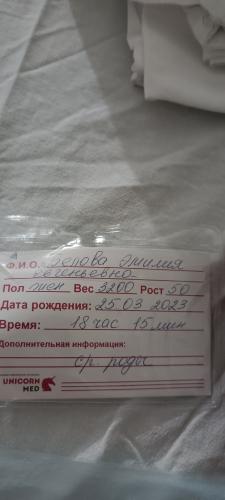 Ф.И.О. Белова Эмилия
Евгеньевна
Пол жен. Вес 3200 Рост 50
Дата рождения: 25.03.2023
Время: 18 час 15 мин
Дополнительная информация:
ср. роды
UNICORN
MED